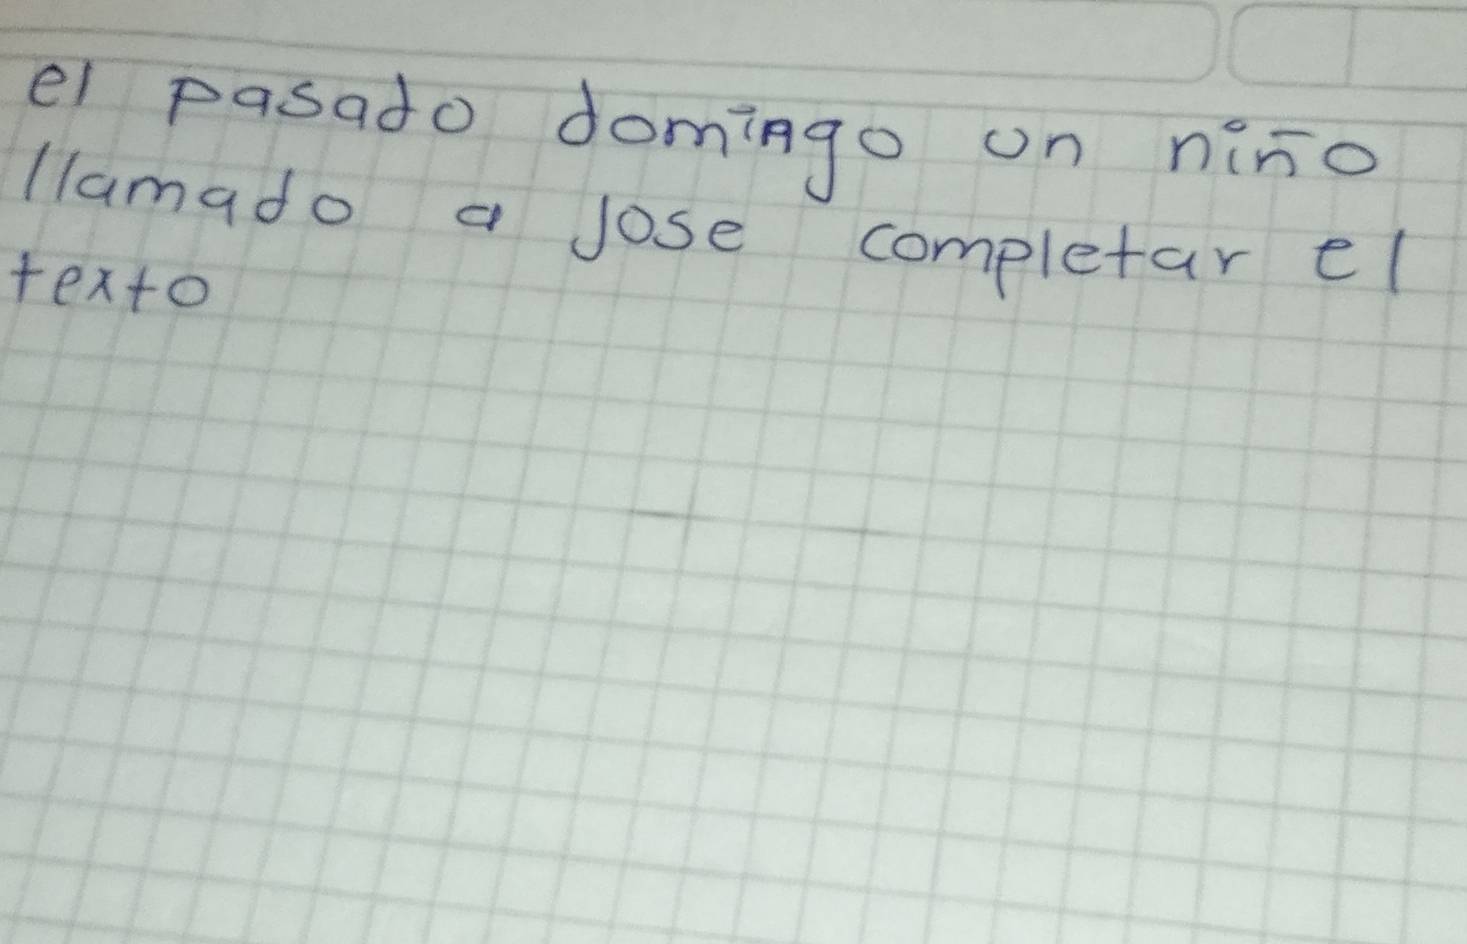 el pasado domingo un niño
llamado a Jose completar el
texto